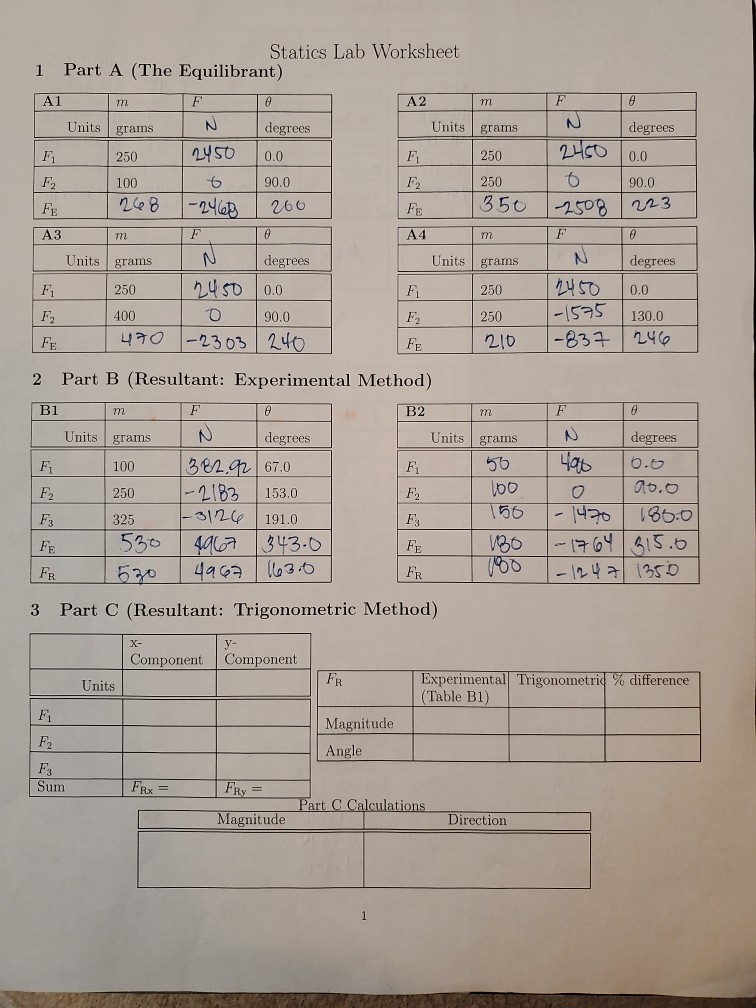 Statics Lab Worksheet
1 Part A (The Equilibrant)
A1 m F θ
Units grams N degrees
F1 250 2450 0.0
F2 100 0 90.0
FE 268 -2468 200
A2 m F θ
Units grams N degrees
F1 250 2450 0.0
F2 250 0 90.0
FE 350 -2508 223
A3 m F θ
Units grams N degrees
F1 250 2450 0.0
F2 400 0 90.0
FE 470 -2303 240
A4 m F θ
Units grams N degrees
F1 250 2450 0.0
F2 250 -1575 130.0
FE 210 -837 246
2 Part B (Resultant: Experimental Method)
B1 m F θ
Units grams N degrees
F1 100 382.92 67.0
F2 250 -2183 153.0
F3 325 -3126 191.0
FE 530 4967 343.0
FR 530 4967 163.0
B2 m F θ
Units grams N degrees
F1 50 490 0.0
F2 100 0 90.0
F3 150 -1470 180.0
FE 180 -1764 315.0
FR 180 -1247 135.0
3 Part C (Resultant: Trigonometric Method)
x- y-
Component Component
Units
F1
F2
F3
Sum FRx = FRy =
FR Experimental Trigonometric % difference
(Table B1)
Magnitude
Angle
Part C Calculations
Magnitude Direction
1